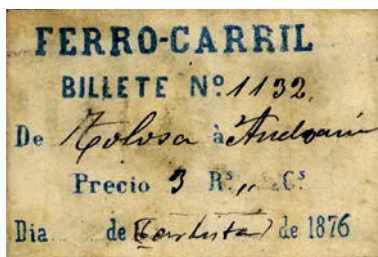 FERRO-CARRIL
BILLETE Nº 1132
De Tolosa à Andoain
Precio 3 Rˢ,, Cˢ
Dia de (Carlista) de 1876